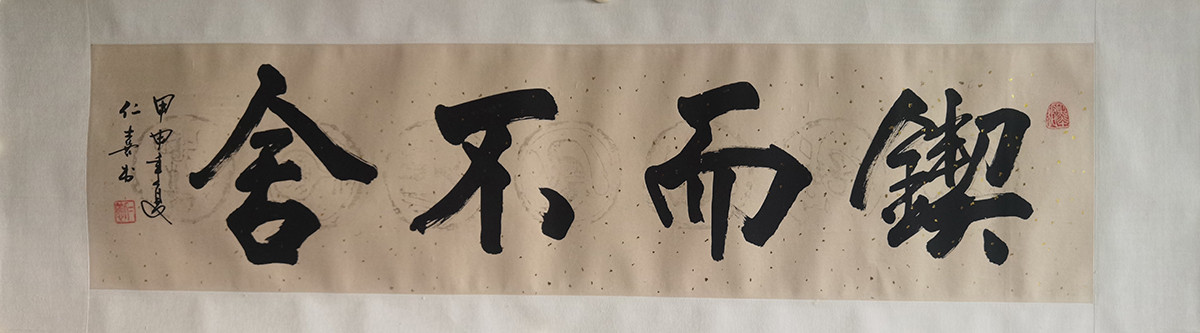 锲而不舍
甲申年夏
仁喜书